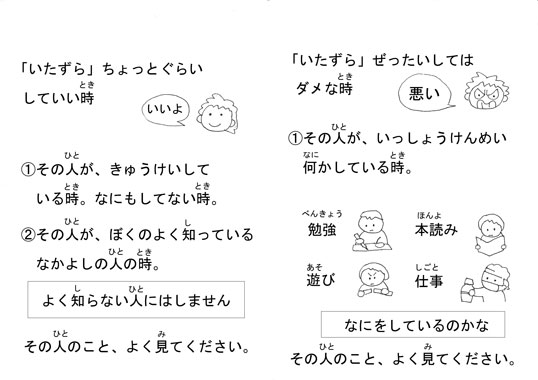 「いたずら」ちょっとぐらい
していい時
とき
いいよ
①その人が、きゅうけいして
ひと
いる時。なにもしてない時。
とき とき
②その人が、ぼくのよく知っている
ひと し
なかよしの人の時。
ひと とき
よく知らない人にはしません
し ひと
その人のこと、よく見てください。
ひと み
「いたずら」ぜったいしては
ダメな時
とき
悪い
①その人が、いっしょうけんめい
ひと
何かしている時。
なに とき
べんきょう
勉強
ほんよ
本読み
あそ
遊び
しごと
仕事
なにをしているのかな
その人のこと、よく見てください。
ひと み